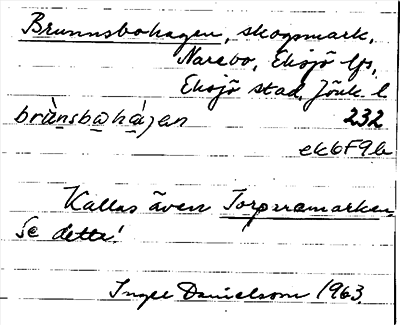 Brunnsbohagen, skogsmark,
Narebo, Eksjö lfs,
Eksjö stad, Jönk. l
brùnsbωhágen 232
ek6F9b
Kallas även Torparamarken
Se detta!
Inger Danielsson 1963.